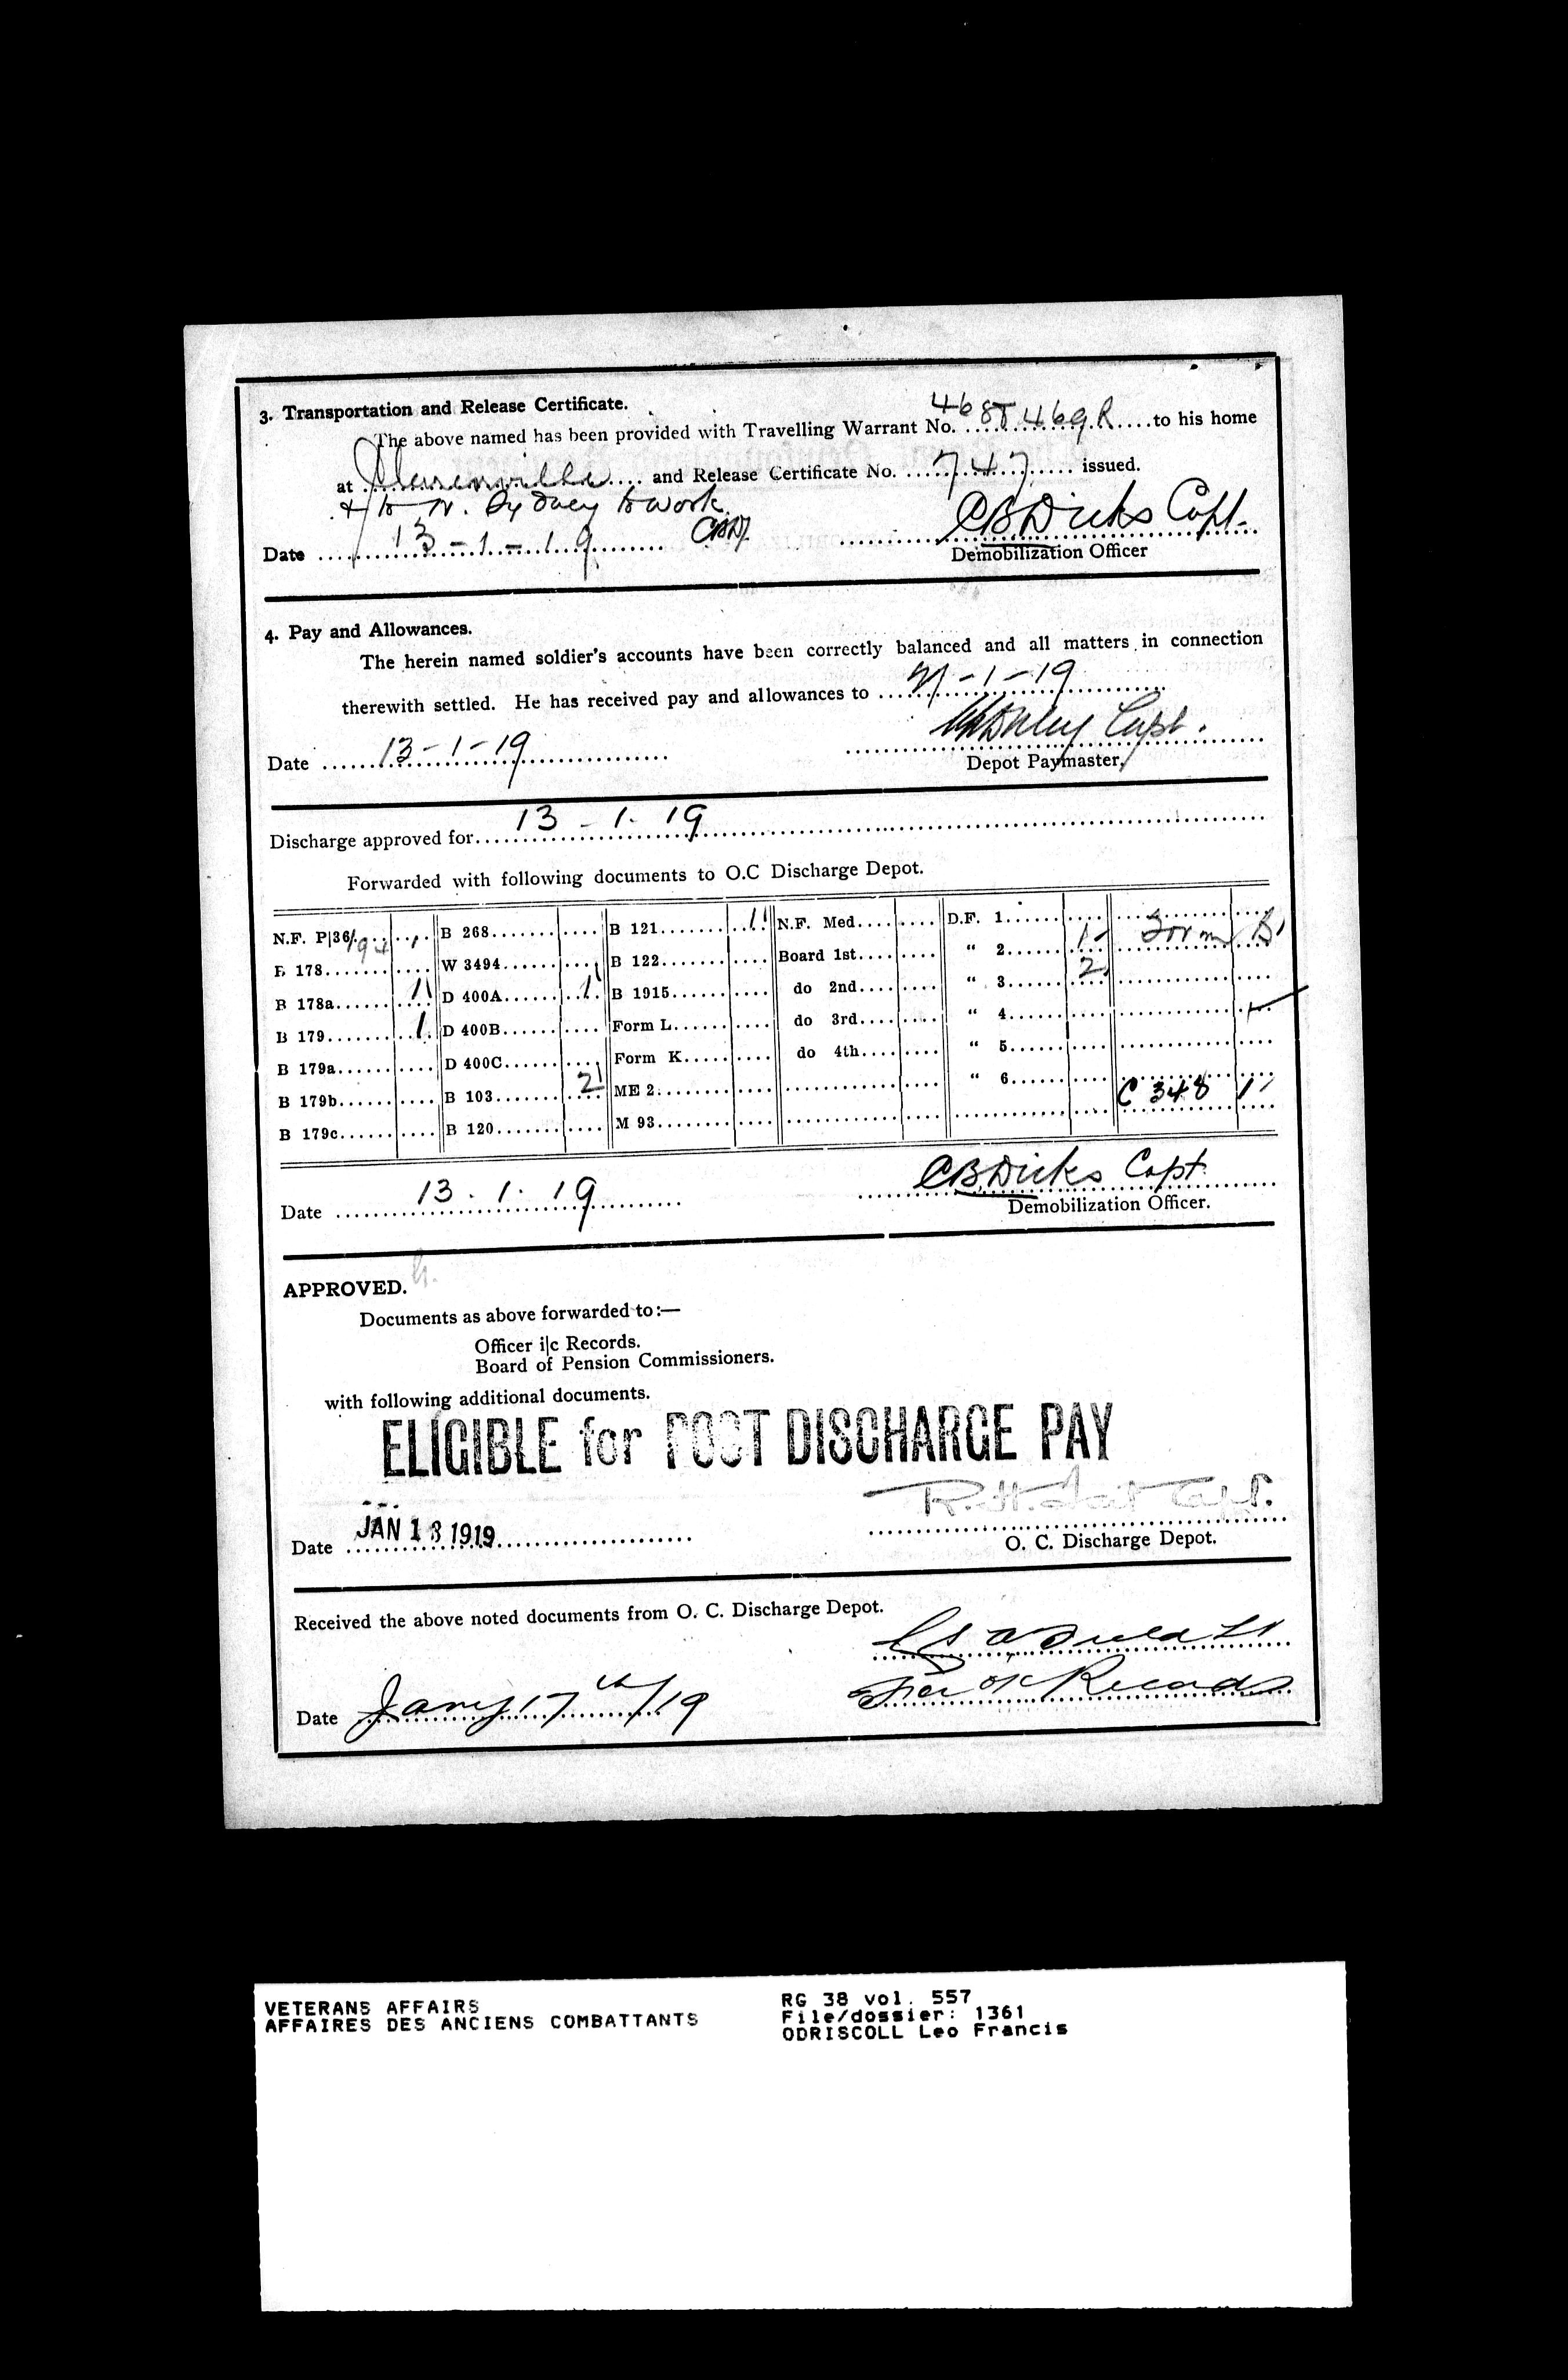 3. Transportation and Release Certificate.
The above named has been provided with Travelling Warrant No. 468T 469R to his home
at Clarenville and Release Certificate No. 747 issued.
& to N. Sydney to work
Date 13-1-19 CBD CBDicks Capt.
Demobilization Officer
4. Pay and Allowances.
The herein named soldier's accounts have been correctly balanced and all matters in connection
therewith settled. He has received pay and allowances to -1-19
Capt.
Date 13-1-19
Depot Paymaster.
Discharge approved for 13-1-19
Forwarded with following documents to O.C Discharge Depot.
N.F. P|36/ 1 B 268 B 121 1 N.F. Med. D.F. 1
B 178 W 3494 B 122 Board 1st " 2 1 Form B 1
B 178a 1 D 400A 1 B 1915 do 2nd " 3 2
B 179 1 D 400B Form L do 3rd " 4
B 179a D 400C Form K do 4th " 5
B 179b B 103 2 ME 2 " 6
B 179c B 120 M 93 C 348 1
Date 13.1.19 CBDicks Capt
Demobilization Officer.
APPROVED.
Documents as above forwarded to:—
Officer i|c Records.
Board of Pension Commissioners.
with following additional documents.
ELIGIBLE for POST DISCHARGE PAY
R.H. Tait Capt.
Date JAN 13 1919
O. C. Discharge Depot.
Received the above noted documents from O. C. Discharge Depot.
Date Jany 17th/19 Records
VETERANS AFFAIRS
AFFAIRES DES ANCIENS COMBATTANTS
RG 38 vol. 557
File/dossier: 1361
ODRISCOLL Leo Francis